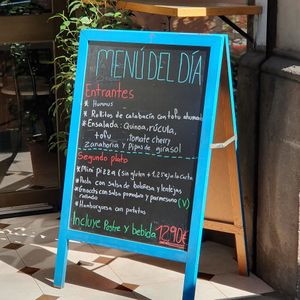 MENÚ DEL DÍA
Entrantes
* Hummus
* Rollitos de calabacín con tofu ahumado
* Ensalada: Quinoa, rúcula,
tofu, Tomate cherry
zanahoria y Pipas de girasol
Segundo plato
* Mini pizza (sin gluten + 1.25€) a la carta
* Pasta con salsa de boloñesa y lentejas
* Gnocchi con salsa pomodoro y parmesano
rallado (V)
* Hamburguesa con patatas
Incluye Postre y bebida 12.90€